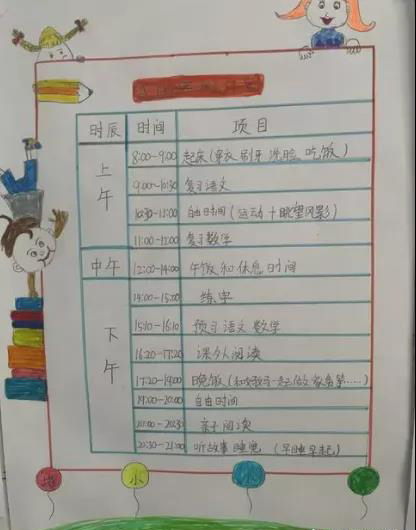 时辰 时间 项目
上午
8:00-9:00 起床(穿衣 刷牙 洗脸 吃饭)
9:00-10:30 复习语文
10:30-11:00 自由时间(运动+眺望风影)
11:00-12:00 复习数学
中午 12:00-14:00 午饭和休息时间
下午
14:00-15:00 练字
15:10-16:10 预习语文 数学
16:20-17:20 课外阅读
17:20-19:00 晚饭(和一起做家务等……)
19:00-20:00 自由时间
20:00-20:30 亲子阅读
20:30-21:00 听故事 睡觉 (早睡早起)
小 小